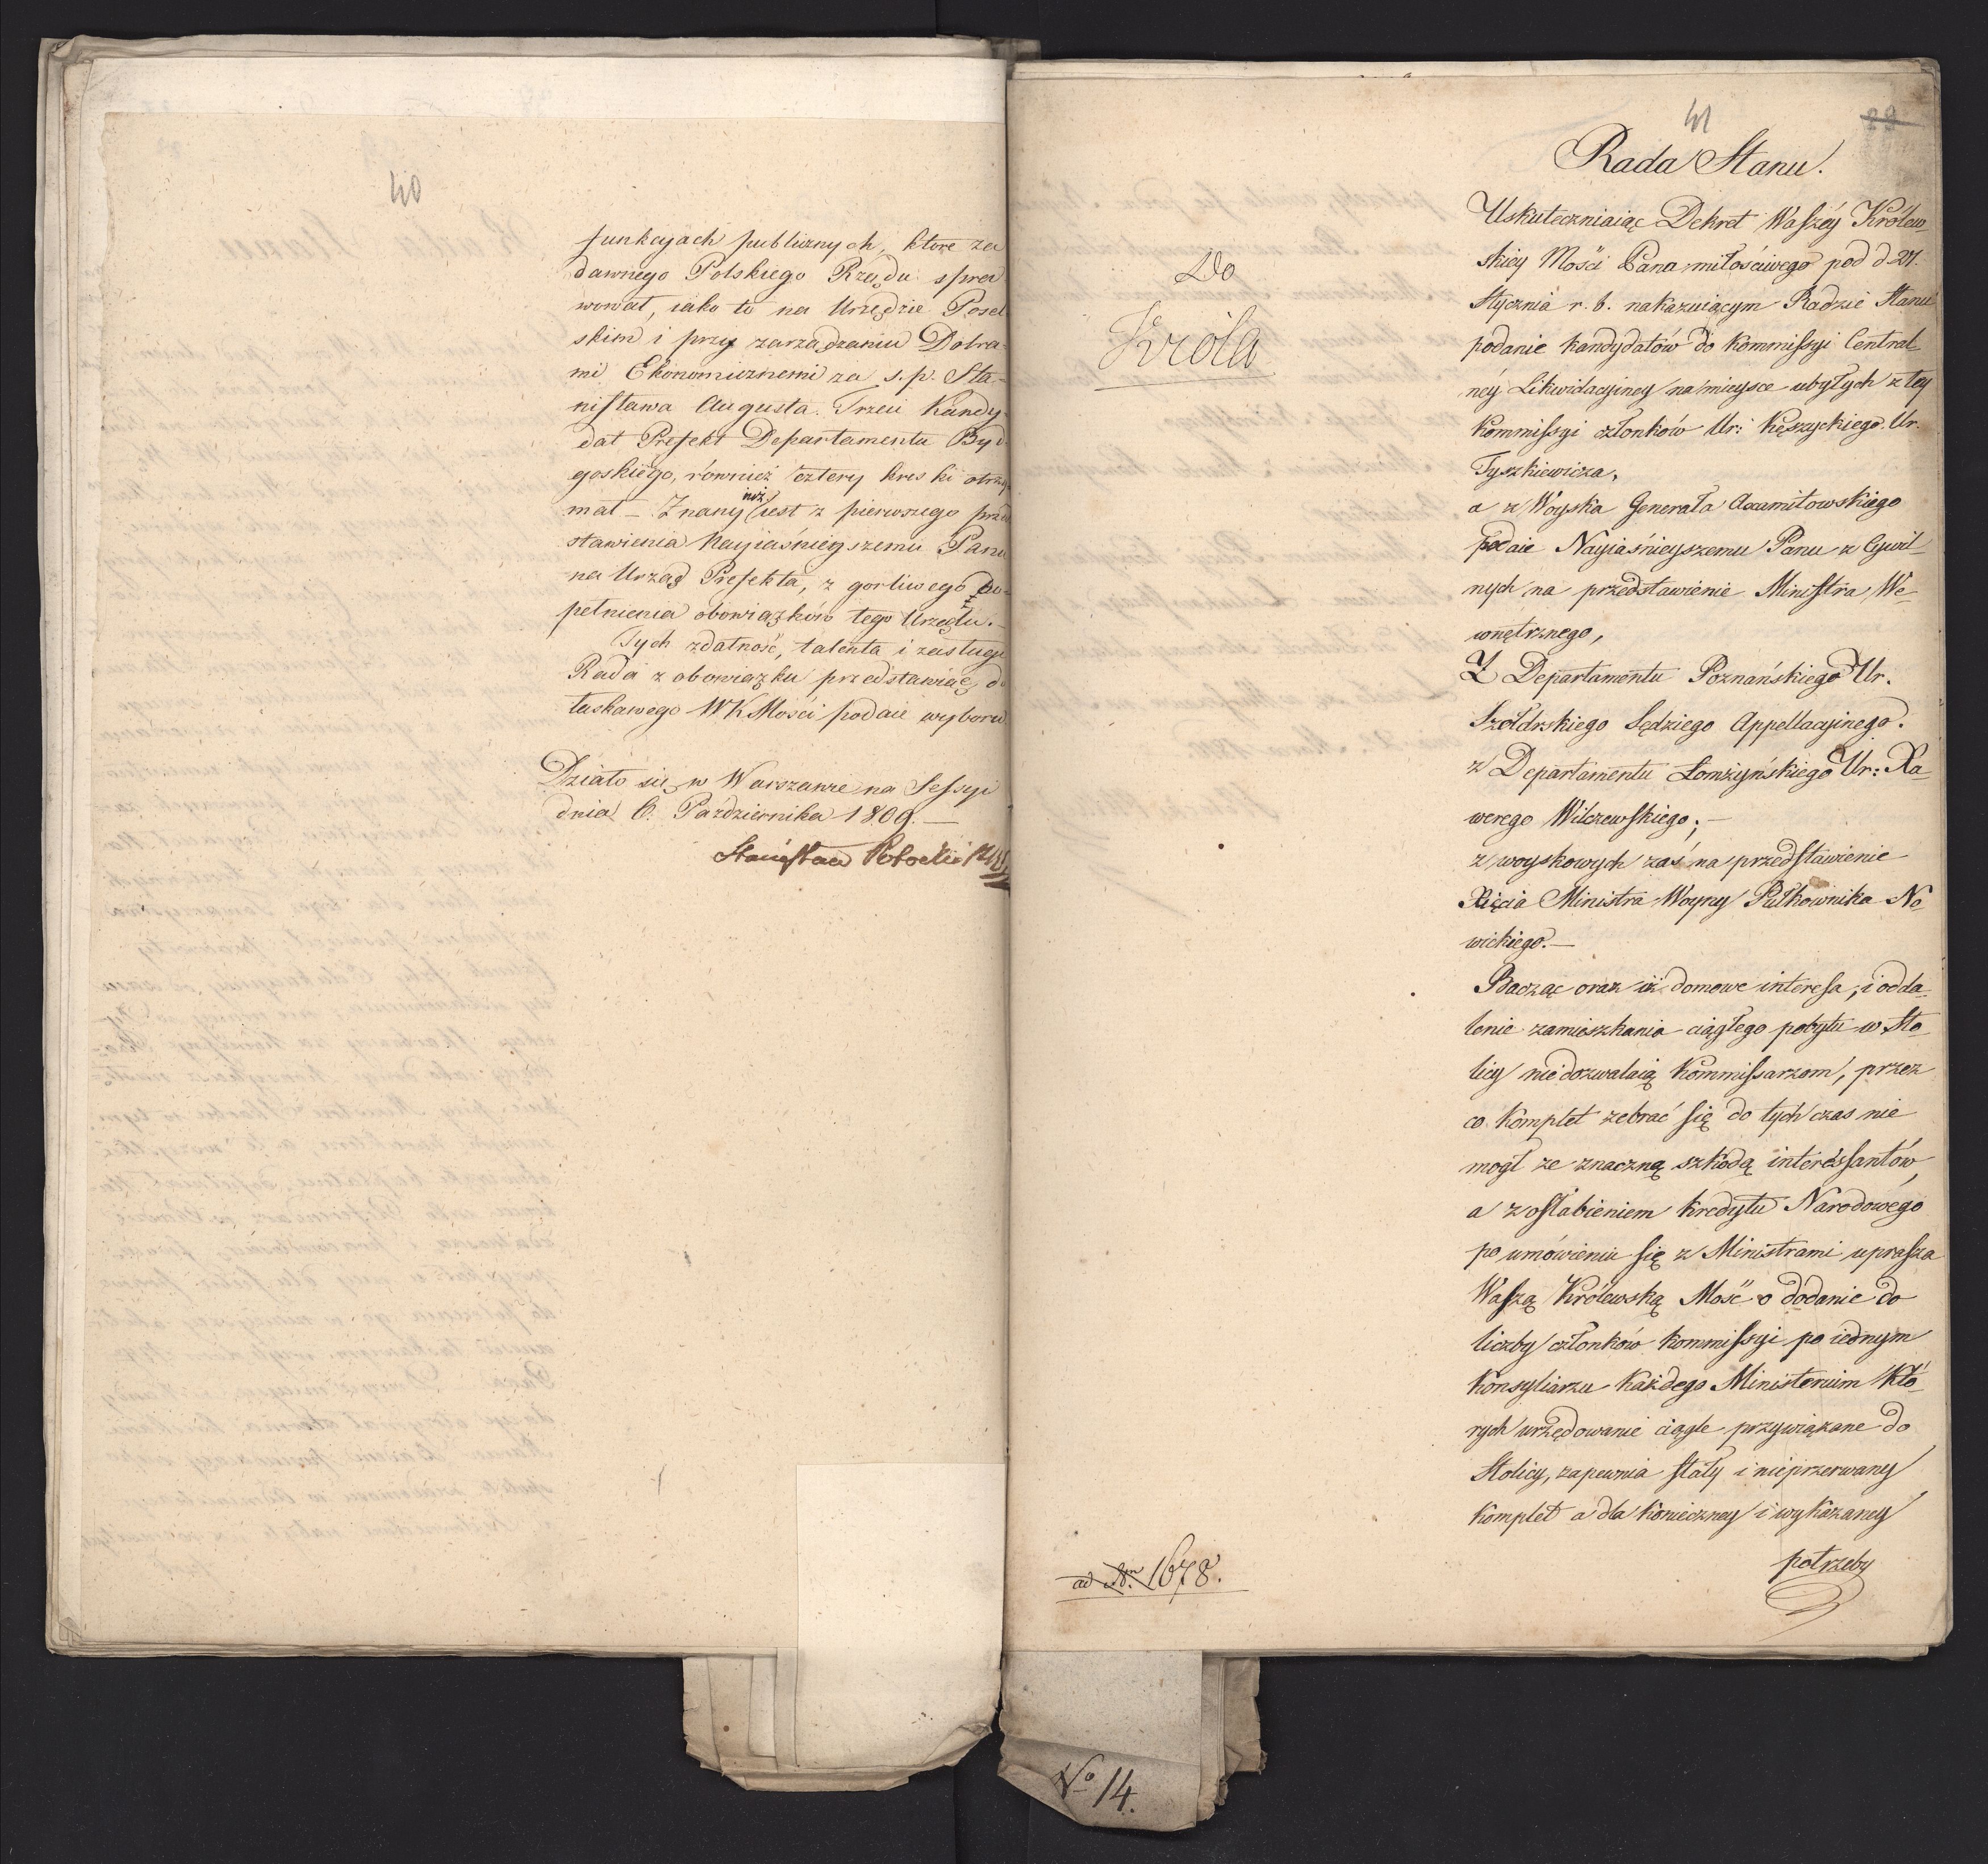 40
funkcyach publicznych, ktore za
dawnego Polskiego Rządu spra
wował, iako to na Urzędzie Posel
skim i przy zarządzaniu Dobra-
mi Ekonomicznemi za s. p. Sta-
nisława Augusta. Trzeci Kandy-
dat Prefekt Departamentu Byd
goskiego, również cztery kreski otrzy
mał – Znany iuż iest z pierwszego przed
stawienia Nayiaśnieyszemu Panu
na Urząd Prefekta, z gorliwego do-
pełnienia obowiązków tego Urzędu. –
Tych zdatność, talenta i zasługi
Rada z obowiązku przedstawiąc, do
łaskawego WKMosci podaie wyboru.
Działo się w Warszawie na Sessyi
dnia 6. Października 1809. –
Stanisław Potocki
41
29
Rada Stanu.
Do
Króla
Uskuteczniaiąc Dekret Waszéy Królew
skiey Mości Pana miłościwego pod d 27.
Stycznia r. b. nakazuiącym Radzie Stanu
podanie kandydatów do Kommissyi Central
néy Likwidacyiney na mieysce ubyłych z tey
Kommissyi członków Ur: Kęszyckiego. Ur.
Tyszkiewicza,
a z Woyska Generała Axamitowskiego
podaie Nayiaśnieyszemu Panu z Cywil
nych na przedstawienie Ministra We-
wnętrznego,
Z Departamentu Poznańskiego Ur.
Szołdrskiego Sędziego Appellacyinego.
z Departamentu Łomżyńskiego Ur: Xa-
werego Wilczewskiego; –
z woyskowych zaś na przedstawienie
Xięcia Ministra Woyny Pułkownika No
wickiego. –
Bacząc oraz iż domowe interesa, i odda-
lenie zamieszkania ciągłego pobytu w Sto
licy nie dozwalaią Kommissarzom, przez
co komplet zebrać się do tych czas nie
mogł ze znaczną szkodą interessantów,
a z osłabieniem kredytu Narodowego
po umówieniu się z Ministrami uprasza
Waszą Królewską Mość o dodanie do
liczby członków kommissyi po iednym
Konsyliarzu każdego Ministerium Któ-
rych urzędowanie ciągle przywiązane do
Stolicy, zapewnia stały i nieprzerwany
komplet a dla konieczney i wykazaney
potrzeby
ad Nrm 1678.
No 14.